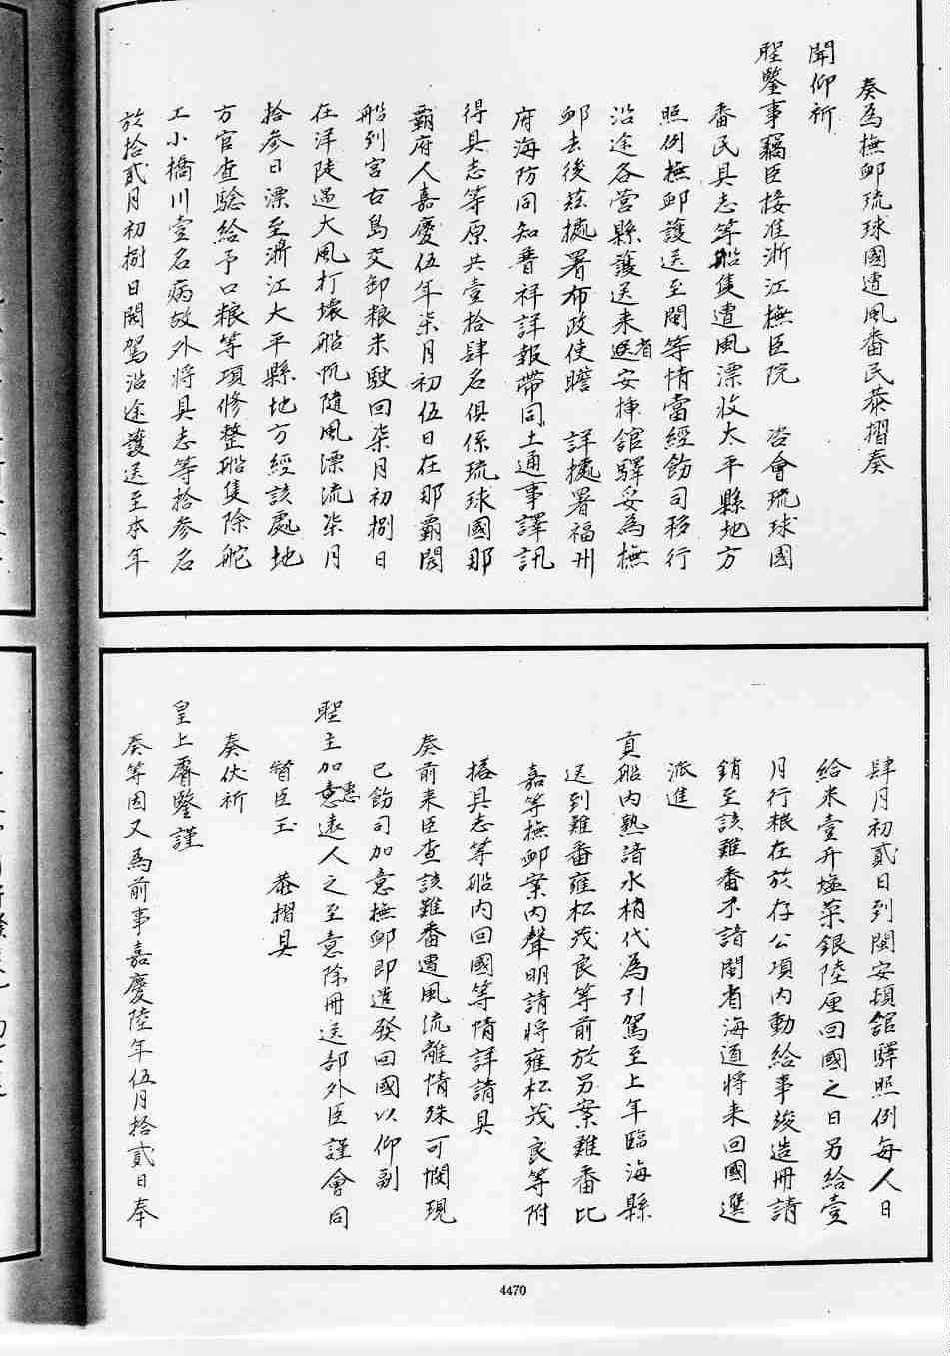 奏為撫卹琉球國遭風番民恭摺奏
聞仰祈
聖鑒事竊臣接准浙江撫臣院 咨會琉球國
番民具志等船隻遭風漂收太平縣地方
照例撫卹護送至閩等情當經飭司移行
沿途各營縣護送来省安揷舘驛妥為撫
卹去後茲據署布政使瞻 詳據署福州
府海防同知番祥詳報帶同土通事譯訊
得具志等原共壹拾肆名俱係琉球國那
霸府人嘉慶伍年柒月初伍日在那霸開
船到宮古島交卸粮米駛回柒月初捌日
在洋陡遇大風打壞船帆隨風漂流柒月
拾參日漂至浙江大平縣地方經該處地
方官查騐給予口粮等項修整船隻除舵
工小橋川壹名病故外將具志等拾參名
於拾貳月初捌日開駕沿途護送至本年
肆月初貳日到閩安頓舘驛照例每人日
給米壹升塩菜銀陸厘回國之日另給壹
月行粮在於存公項内動給事竣造冊請
銷至該難番不諳閩省海道將来回國選
派進
貢船内熟諳水梢代為引駕至上年臨海縣
送到難番雍松茂良等前於另案難番比
嘉等撫卹案内聲明請將雍松茂良等附
搭具志等船内回國等情詳請具
奏前来臣查該難番遭風流離情殊可憫現
已飭司加意撫卹即遣發回國以仰副
聖主加惠遠人之至意除冊送部外臣謹會同
督臣玉 恭摺具
奏伏祈
皇上睿鑒謹
奏等因又為前事嘉慶陸年伍月拾貳日奉
4470